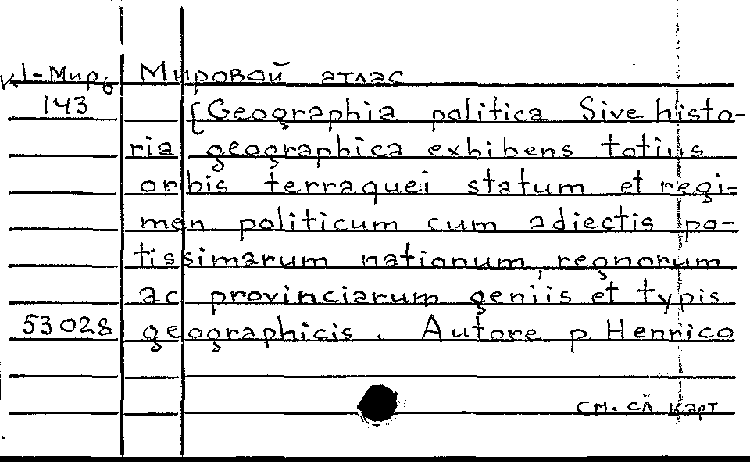 К1-Мир6 Мировой атлас
143 [Geographia politica Sive histo-
ria geographica exhibens totius
orbis terraquei statum et regi-
men politicum cum adiectis po-
tissimarum nationum, regnorum
ac provinciarum geniis et typis
53028 geographicis. Autore p Henrico
см. сл карт